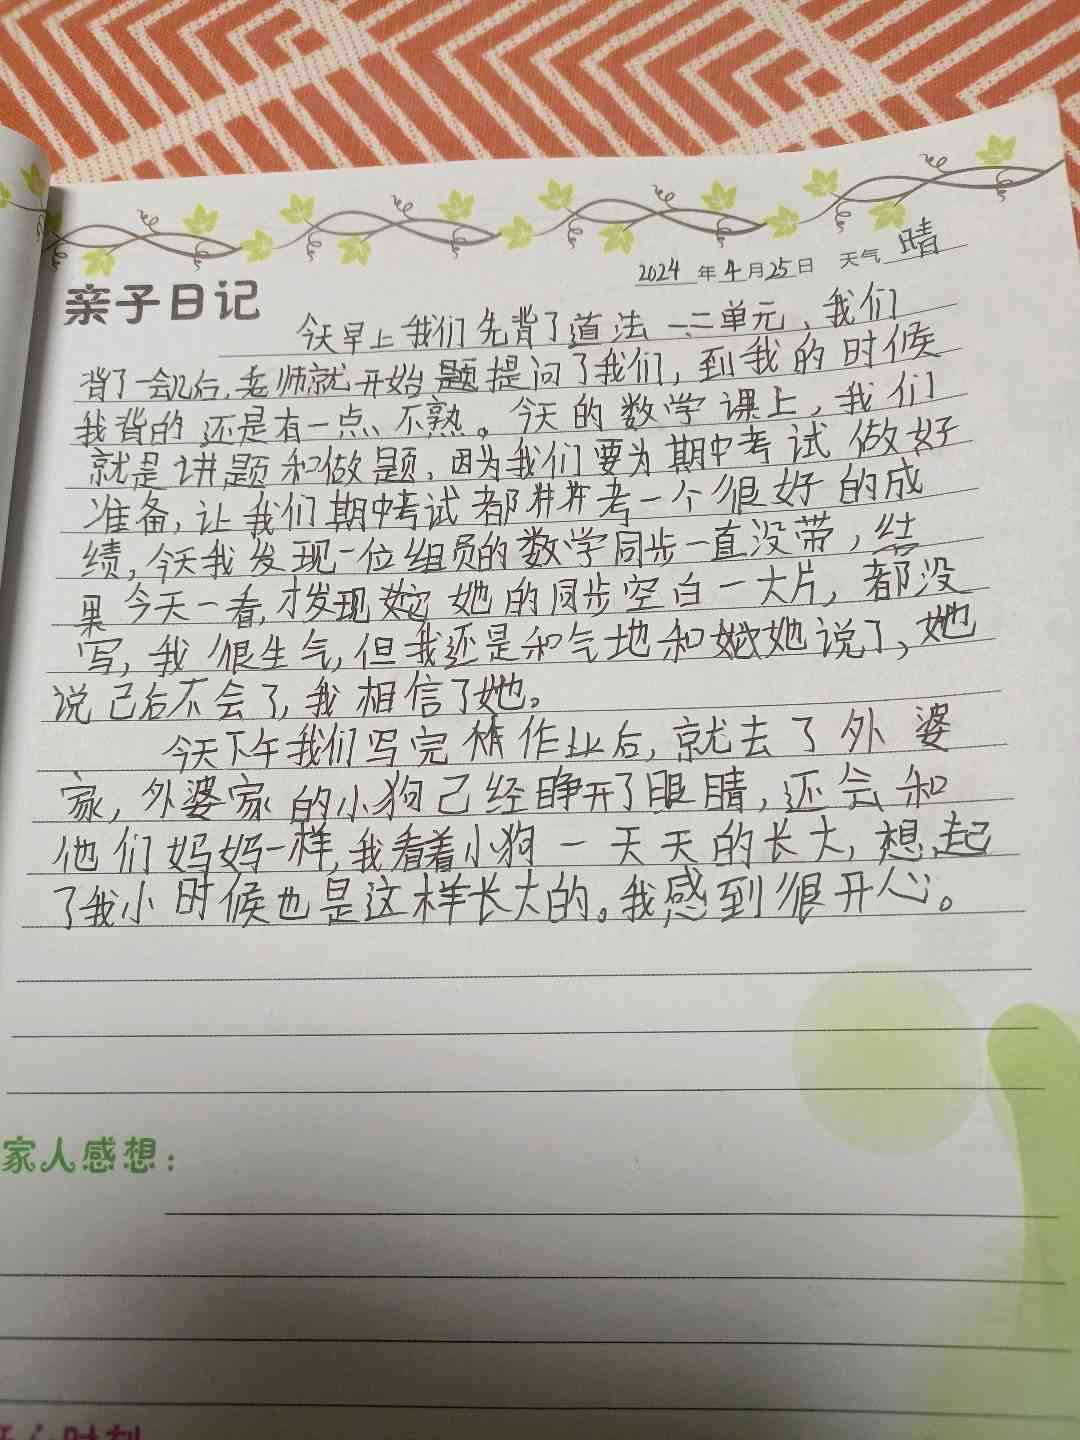 2024年4月25日 天气 晴
亲子日记
今天早上我们先背了道法一二单元，我们
背了一会儿后，老师就开始题提问了我们，到我的时候
我背的还是有一点不熟。今天的数学课上，我们
就是讲题和做题，因为我们要为期中考试做好
准备，让我们期中考试都考一个很好的成
绩，今天我发现一位组员的数学同步一直没带，结
果今天一看，才发现她的同步空白一大片，都没
写，我很生气，但我还是和气地和她说了，她
说已后不会了，我相信了她。
今天下午我们写完作业后，就去了外婆
家，外婆家的小狗已经睁开了眼睛，还会和
他们妈妈一样，我看着小狗一天天的长大，想起
了我小时候也是这样长大的。我感到很开心。
家人感想：